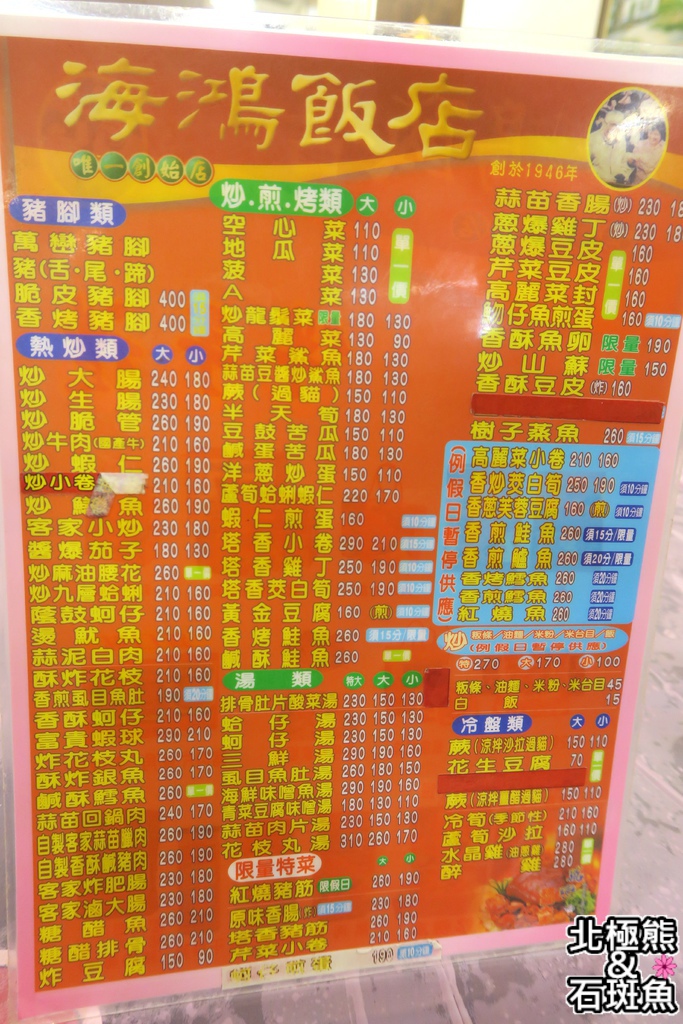 海鴻飯店
唯一創始店
創於1946年
豬腳類
萬巒豬腳
豬(舌·尾·蹄)
脆皮豬腳 400
香烤豬腳 400
熱炒類 大 小
炒大腸 240 180
炒生腸 230 180
炒脆管 260 190
炒牛肉(國產牛) 210 160
炒蝦仁 260 190
炒小卷 210 160
炒鱔魚 260 190
客家小炒 230 180
醬爆茄子 180 130
炒麻油腰花 260 單一價
炒九層蛤蜊 210 160
蔭鼓蚵仔 210 160
燙魷魚 210 160
蒜泥白肉 210 160
酥炸花枝 210 160
香煎虱目魚肚 190 須20分鐘
香酥蚵仔 210 160
富貴蝦球 290 210
炸花枝丸 260 170
酥炸銀魚 260 170
鹹酥鱈魚 260 單一價
蒜苗回鍋肉 240 170
自製客家蒜苗臘肉 260 190
自製香酥鹹豬肉 260 190
客家炸肥腸 230 180
客家滷大腸 230 180
糖醋魚 260 210
糖醋排骨 260 210
炸豆腐 150 90
炒.煎.烤類 大 小
空心菜 110
地瓜菜 110
波菜 130
A菜 130
單一價
炒龍鬚菜 限量 180 130
高麗菜 130 90
芹菜鯊魚 180 130
蒜苗豆醬炒鯊魚 180 130
蕨(過貓) 150 110
半天筍 180 130
豆鼓苦瓜 150 110
鹹蛋苦瓜 180 130
洋蔥炒蛋 150 110
蘆筍蛤蜊蝦仁 220 170
蝦仁煎蛋 160 須10分鐘
塔香小卷 290 210 須15分鐘
塔香雞丁 250 190 須10分鐘
塔香茭白筍 250 190 須10分鐘
黃金豆腐 160 (煎) 須10分鐘
香烤鮭魚 260 須15分/限量
鹹酥鮭魚 260 單一價
湯類 特大 大 小
排骨肚片酸菜湯 230 150 130
蛤仔湯 230 150 130
蚵仔湯 230 150 130
三鮮湯 290 190 160
虱目魚肚湯 260 180 150
海鮮味噌魚湯 290 190 160
青菜豆腐味噌湯 180 130 110
蒜苗肉片湯 230 150 130
花枝丸湯 310 260 170
限量特菜 大 小
紅燒豬筋 限假日 260 190
原味香腸(炸) 須15分鐘 230 180
塔香豬筋 260 190
芹菜小卷 210 160
190 須10分鐘
蒜苗香腸(炒) 230 18
蔥爆雞丁(炒) 230 18
蔥爆豆皮 160
芹菜豆皮 160
高麗菜封 160
單一價
吻仔魚煎蛋 160 須10分鐘
香酥魚卵 限量 190
炒山蘇 限量 150
香酥豆皮(炸) 160
樹子蒸魚 260 須15分鐘
(例假日暫停供應)
高麗菜小卷 210 160
香炒茭白筍 250 190 須10分鐘
香蔥芙蓉豆腐 160 (煎) 須10分鐘
香煎鮭魚 260 須15分/限量
香煎鱸魚 260 須20分/限量
香烤鱈魚 260 須20分鐘
香煎鱈魚 260 須20分鐘
紅燒魚 260 須20分鐘
炒 粄條/油麵/米粉/米台目/飯
(例假日暫停供應)
特270 大170 小100
粄條、油麵、米粉、米台目 45
白飯 15
冷盤類 大 小
蕨(涼拌沙拉過貓) 150 110
花生豆腐 70
蕨(涼拌薑醋過貓) 150 110
冷筍(季節性) 210 160
蘆筍沙拉 160 110
水晶雞(油蔥雞) 280
醉雞 280
單一價
北極熊
&
石斑魚